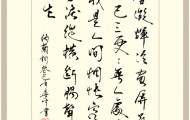 凝輝冷畫屏
已三更々無人處
我是人間惆悵客
淚縱橫斷腸聲
生
納蘭詞